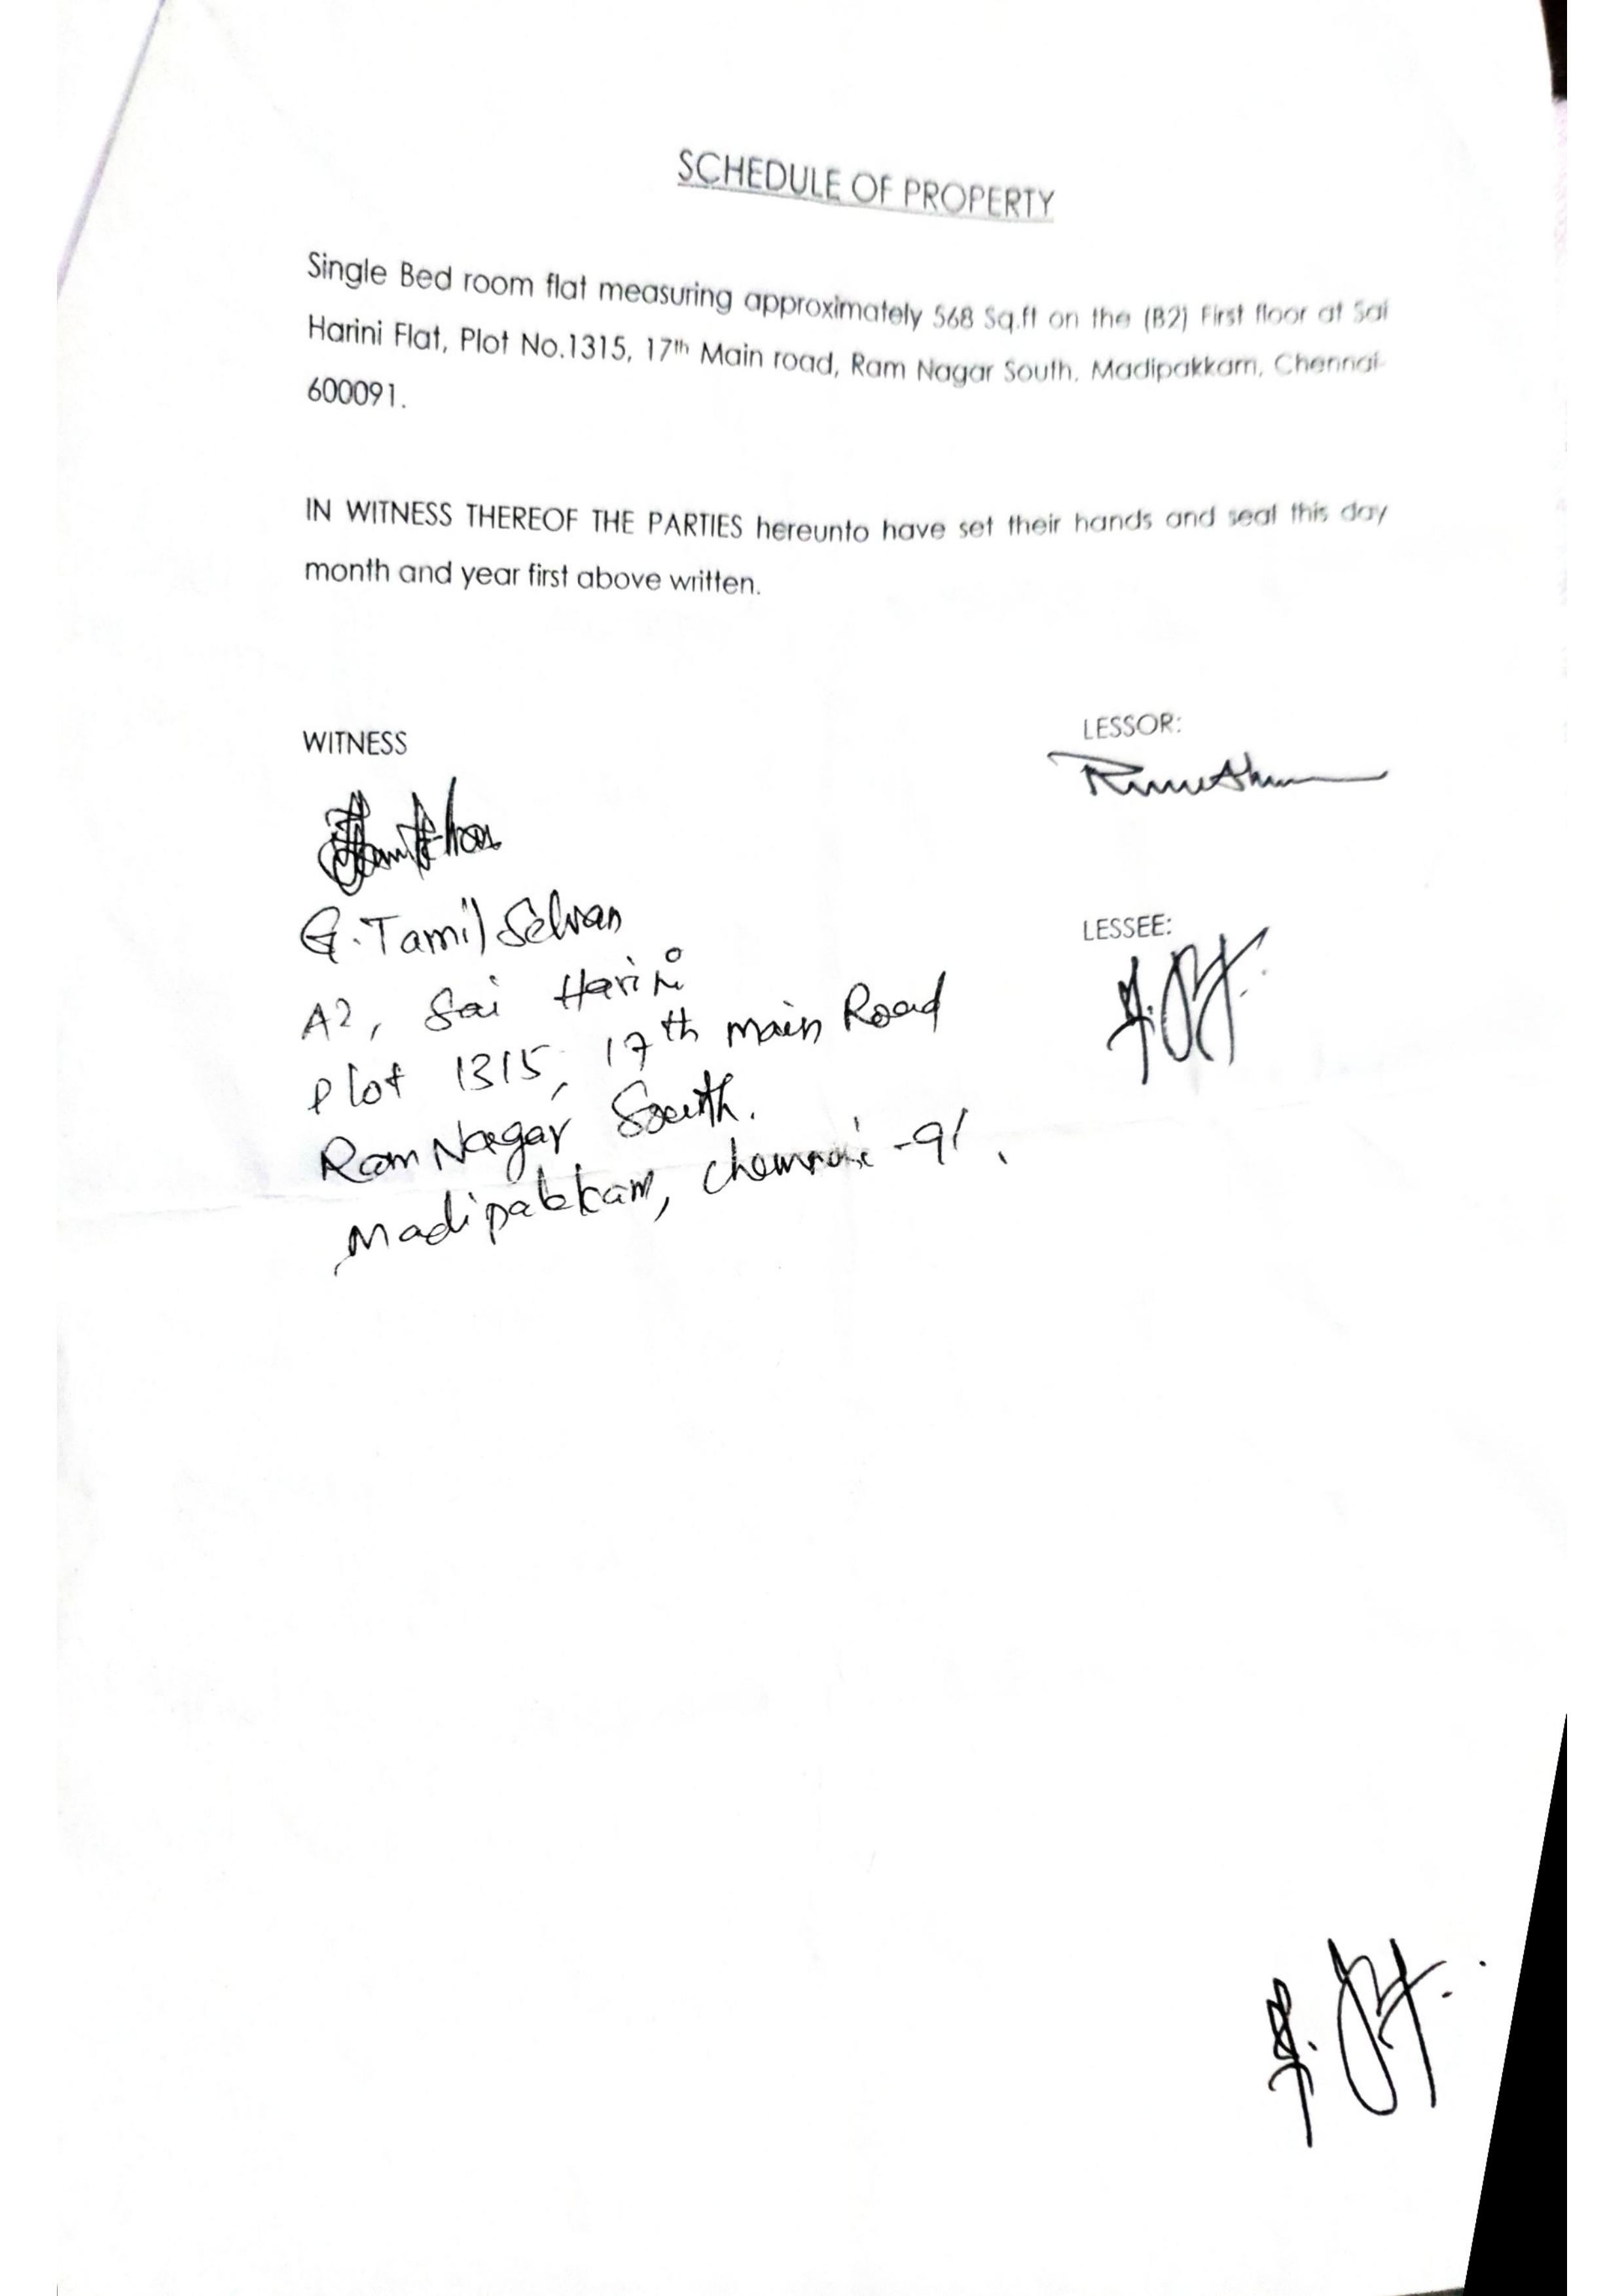 SCHEDULE OF PROPERTY
Single Bed room flat measuring approximately 568 Sq.ft on the (B2) First floor at Sai
Harini Flat, Plot No.1315, 17th Main road, Ram Nagar South. Madipakkam, Chennai-
600091.
IN WITNESS THEREOF THE PARTIES hereunto have set their hands and seal this day
month and year first above written.
WITNESS
LESSOR:
G. Tamil Selvan
LESSEE:
A2, Sai Harini
Plot 1315, 17th main Road
Ram Nagar South.
Madipakkam, Chennai -91.